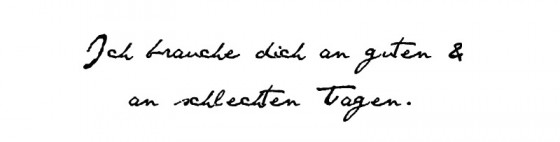 Ich brauche dich an guten &
an schlechten Tagen.